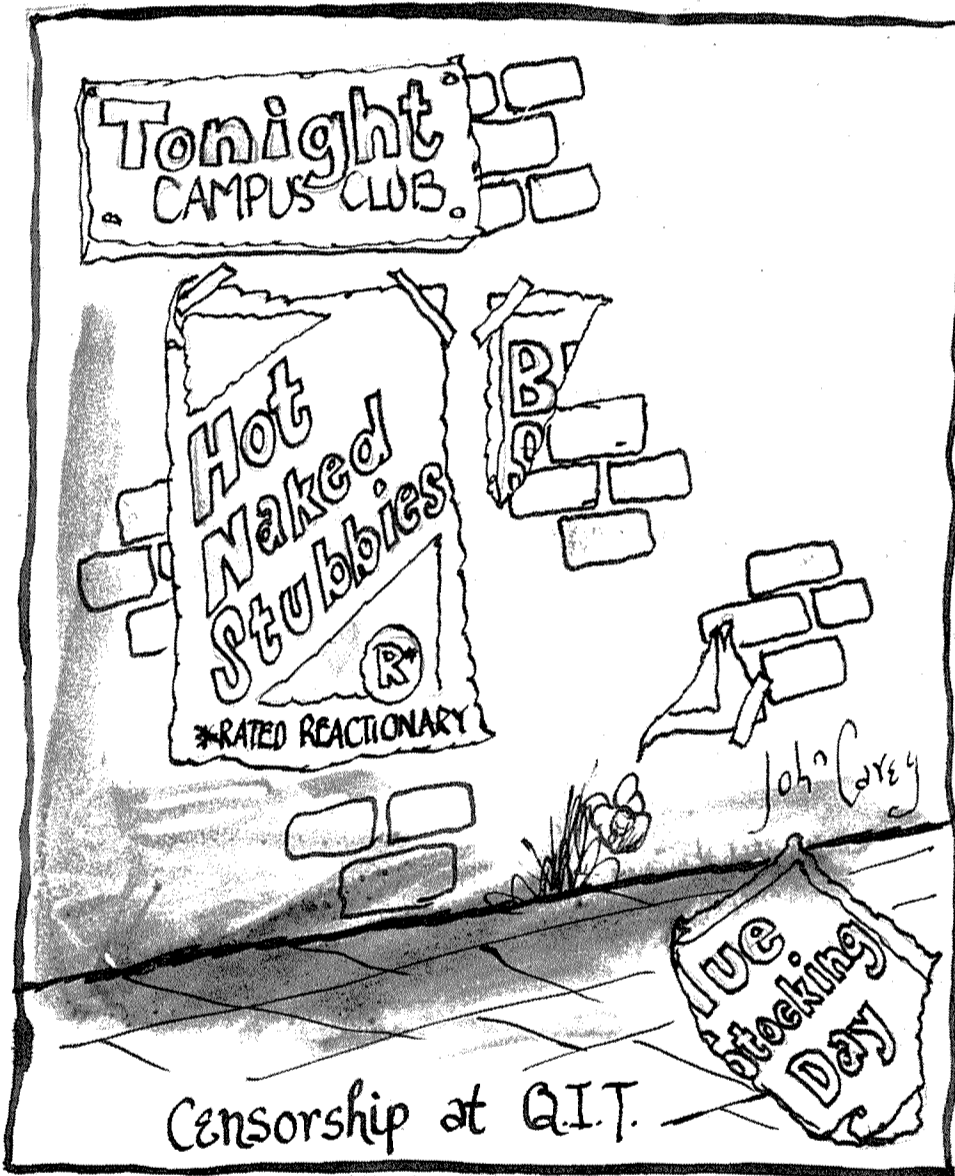 Tonight
CAMPUS CLUB
Hot
Naked
Stubbies
R*
*RATED REACTIONARY
B
John Carey
ue
Stocking
Day
Censorship at Q.I.T.